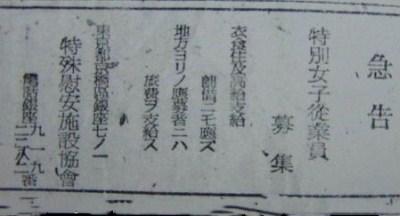 急告
特別女子從業員
募集
衣食住及高給支給
前借ニモ應ズ
地方ヨリノ應募者ニハ
旅費ヲ支給ス
東京都京橋區銀座七ノ一
特殊慰安施設協會
電話銀座九一九
二二八二番